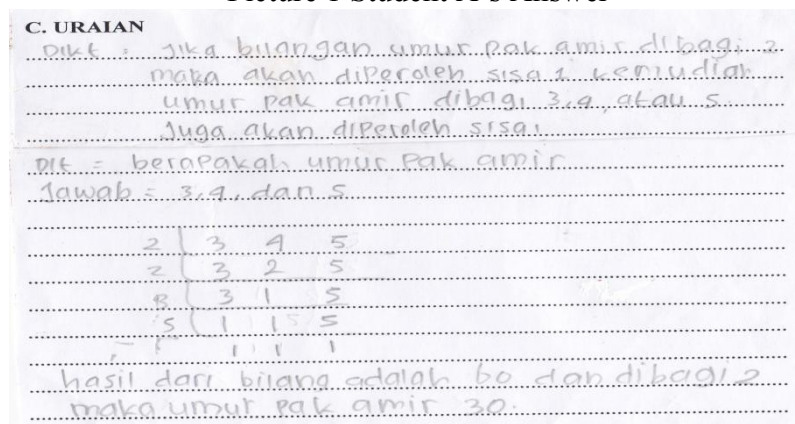 Picture 1 Student A's Answer
C. URAIAN
Dikt = Jika bilangan umur pak amir dibagi 2
maka akan diperoleh sisa 1 kemudian
umur pak amir dibagi 3,4, atau 5
Juga akan diperoleh sisa 1
Dit = berapakah umur pak amir
Jawab = 3,4, dan 5
2 3 4 5
2 3 2 5
3 3 1 5
5 1 1 5
1 1 1
hasil dari bilang adalah 60 dan dibagi 2
maka umur pak amir 30.